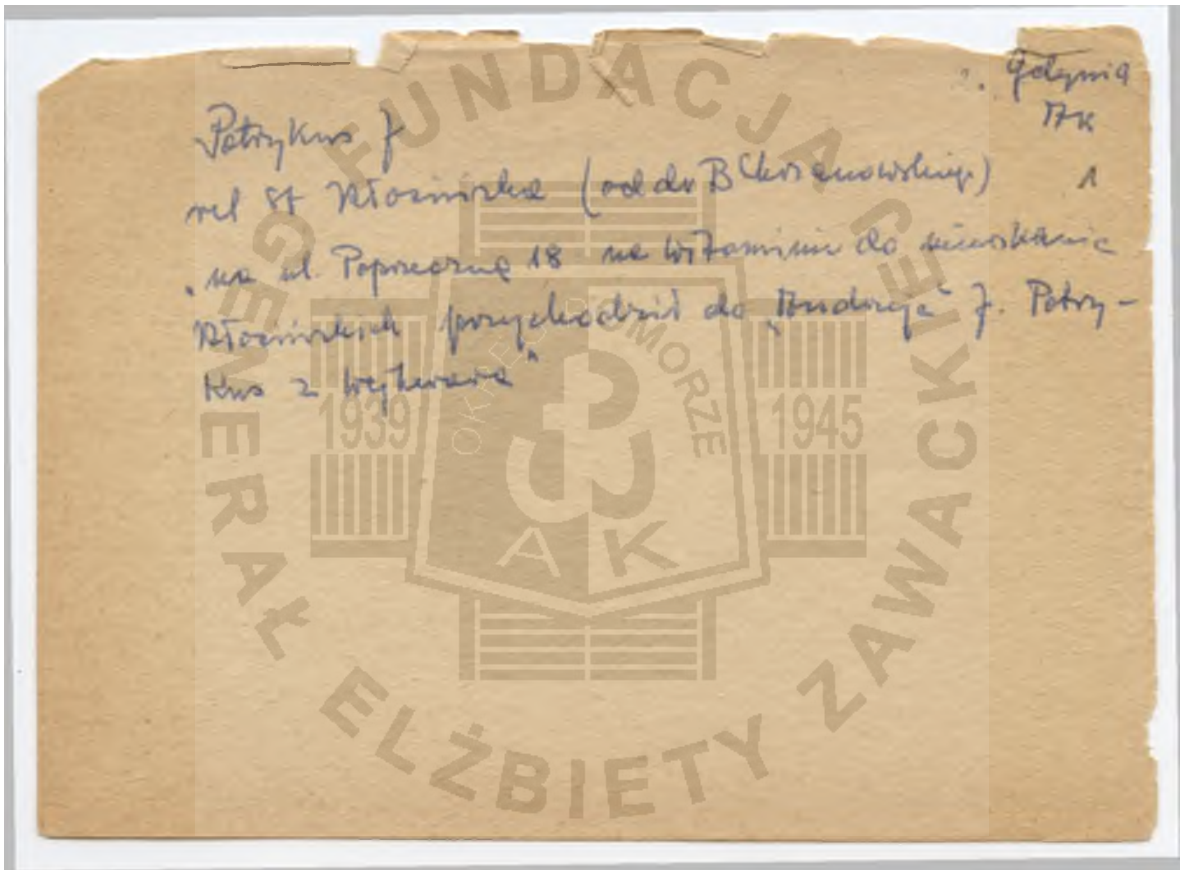 Gdynia
AK
Patrykus J
1
rel St Kłosińska (od dr B Chrzanowskiego)
"na ul. Poprzeczną 18 na Witominie do mieszkania
przychodził do J. Patry-
kus z Wejherowa"
FUNDACJA GENERAŁ ELŻBIETY ZAWACKIEJ
OKRĘG POMORZE
1939
1945
AK